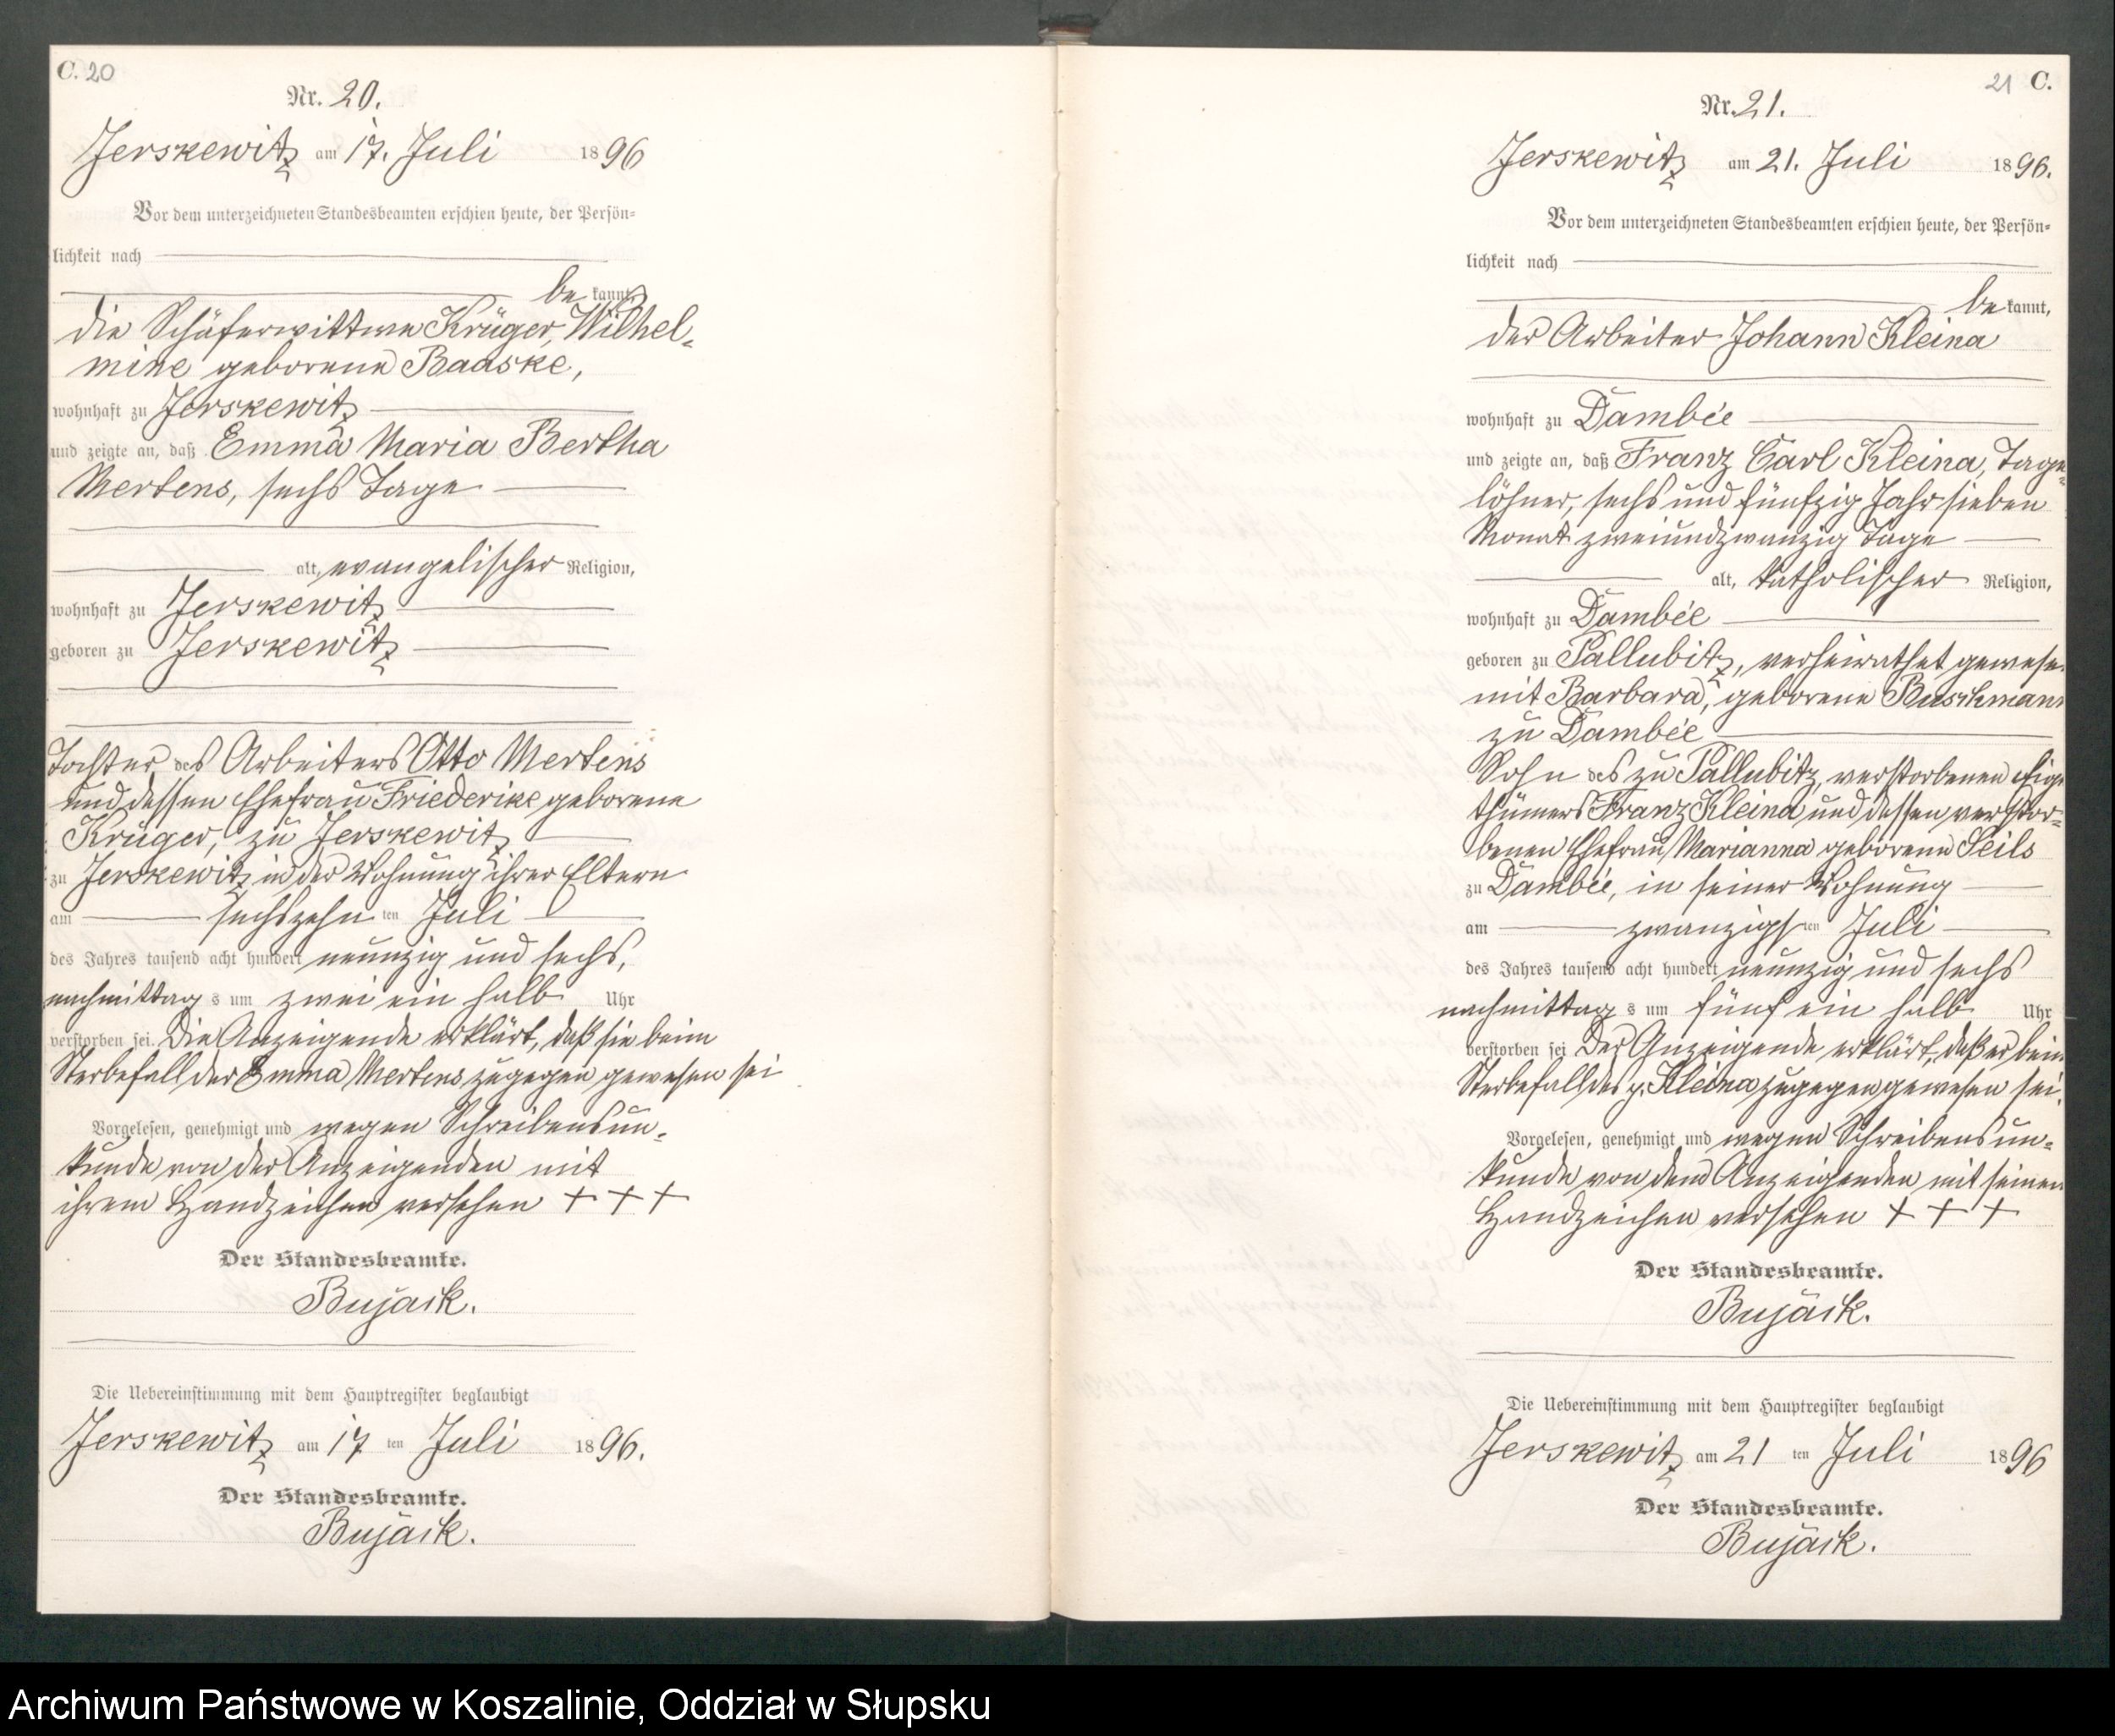 C. 20
Nr. 20.
Jerskewitz am 17. Juli 1896
Vor dem unterzeichneten Standesbeamten erschien heute, der Persön-
lichkeit nach
be kannt,
die Schäferwittwe Krüger, Wilhel-
mine geborene Baaske,
wohnhaft zu Jerskewitz
und zeigte an, daß Emma Maria Bertha
Mertens, sechs Tage
alt, evangelischer Religion,
wohnhaft zu Jerskewitz
geboren zu Jerskewitz
Tochter des Arbeiters Otto Mertens
und dessen Ehefrau Friederike geborene
Krüger, zu Jerskewitz
zu Jerskewitz in der Wohnung ihrer Eltern
am sechszehn ten Juli
des Jahres tausend acht hundert neunzig und sechs,
nachmittag s um zwei ein halb Uhr
verstorben sei. Die Anzeigende erklärt, daß sie beim
Sterbefall der Emma Mertens zugegen gewesen sei
Vorgelesen, genehmigt und wegen Schreibensun-
kunde von der Anzeigenden mit
ihrem Handzeichen versehen + + +
Der Standesbeamte.
Bujack.
Die Uebereinstimmung mit dem Hauptregister beglaubigt
Jerskewitz am 17 ten Juli 1896.
Der Standesbeamte.
Bujack.
21 C.
Nr. 21.
Jerskewitz am 21. Juli 1896.
Vor dem unterzeichneten Standesbeamten erschien heute, der Persön-
lichkeit nach
be kannt,
der Arbeiter Johann Kleina
wohnhaft zu Dambée
und zeigte an, daß Franz Carl Kleina, Tage-
löhner, sechs und fünfzig Jahr sieben
Monat zweiundzwanzig Tage
alt, katholischer Religion,
wohnhaft zu Dambée
geboren zu Pallubitz, verheirathet gewese
mit Barbara, geborene Buschmann
zu Dambée
Sohn des zu Pallubitz verstorbenen Eige
thümers Franz Kleina und dessen verstor-
benen Ehefrau Marianna geborene Seils
zu Dambée, in seiner Wohnung
am zwanzigs ten Juli
des Jahres tausend acht hundert neunzig und sechs
nachmittag s um fünf ein halb Uhr
verstorben sei Der Anzeigende erklärt, daß er beim
Sterbefall des p. Kleina zugegen gewesen sei.
Vorgelesen, genehmigt und wegen Schreibensun-
kunde von dem Anzeigenden mit seinen
Handzeichen versehen + + +
Der Standesbeamte.
Bujack.
Die Uebereinstimmung mit dem Hauptregister beglaubigt
Jerskewitz am 21 ten Juli 1896
Der Standesbeamte.
Bujack.
Archiwum Państwowe w Koszalinie, Oddział w Słupsku